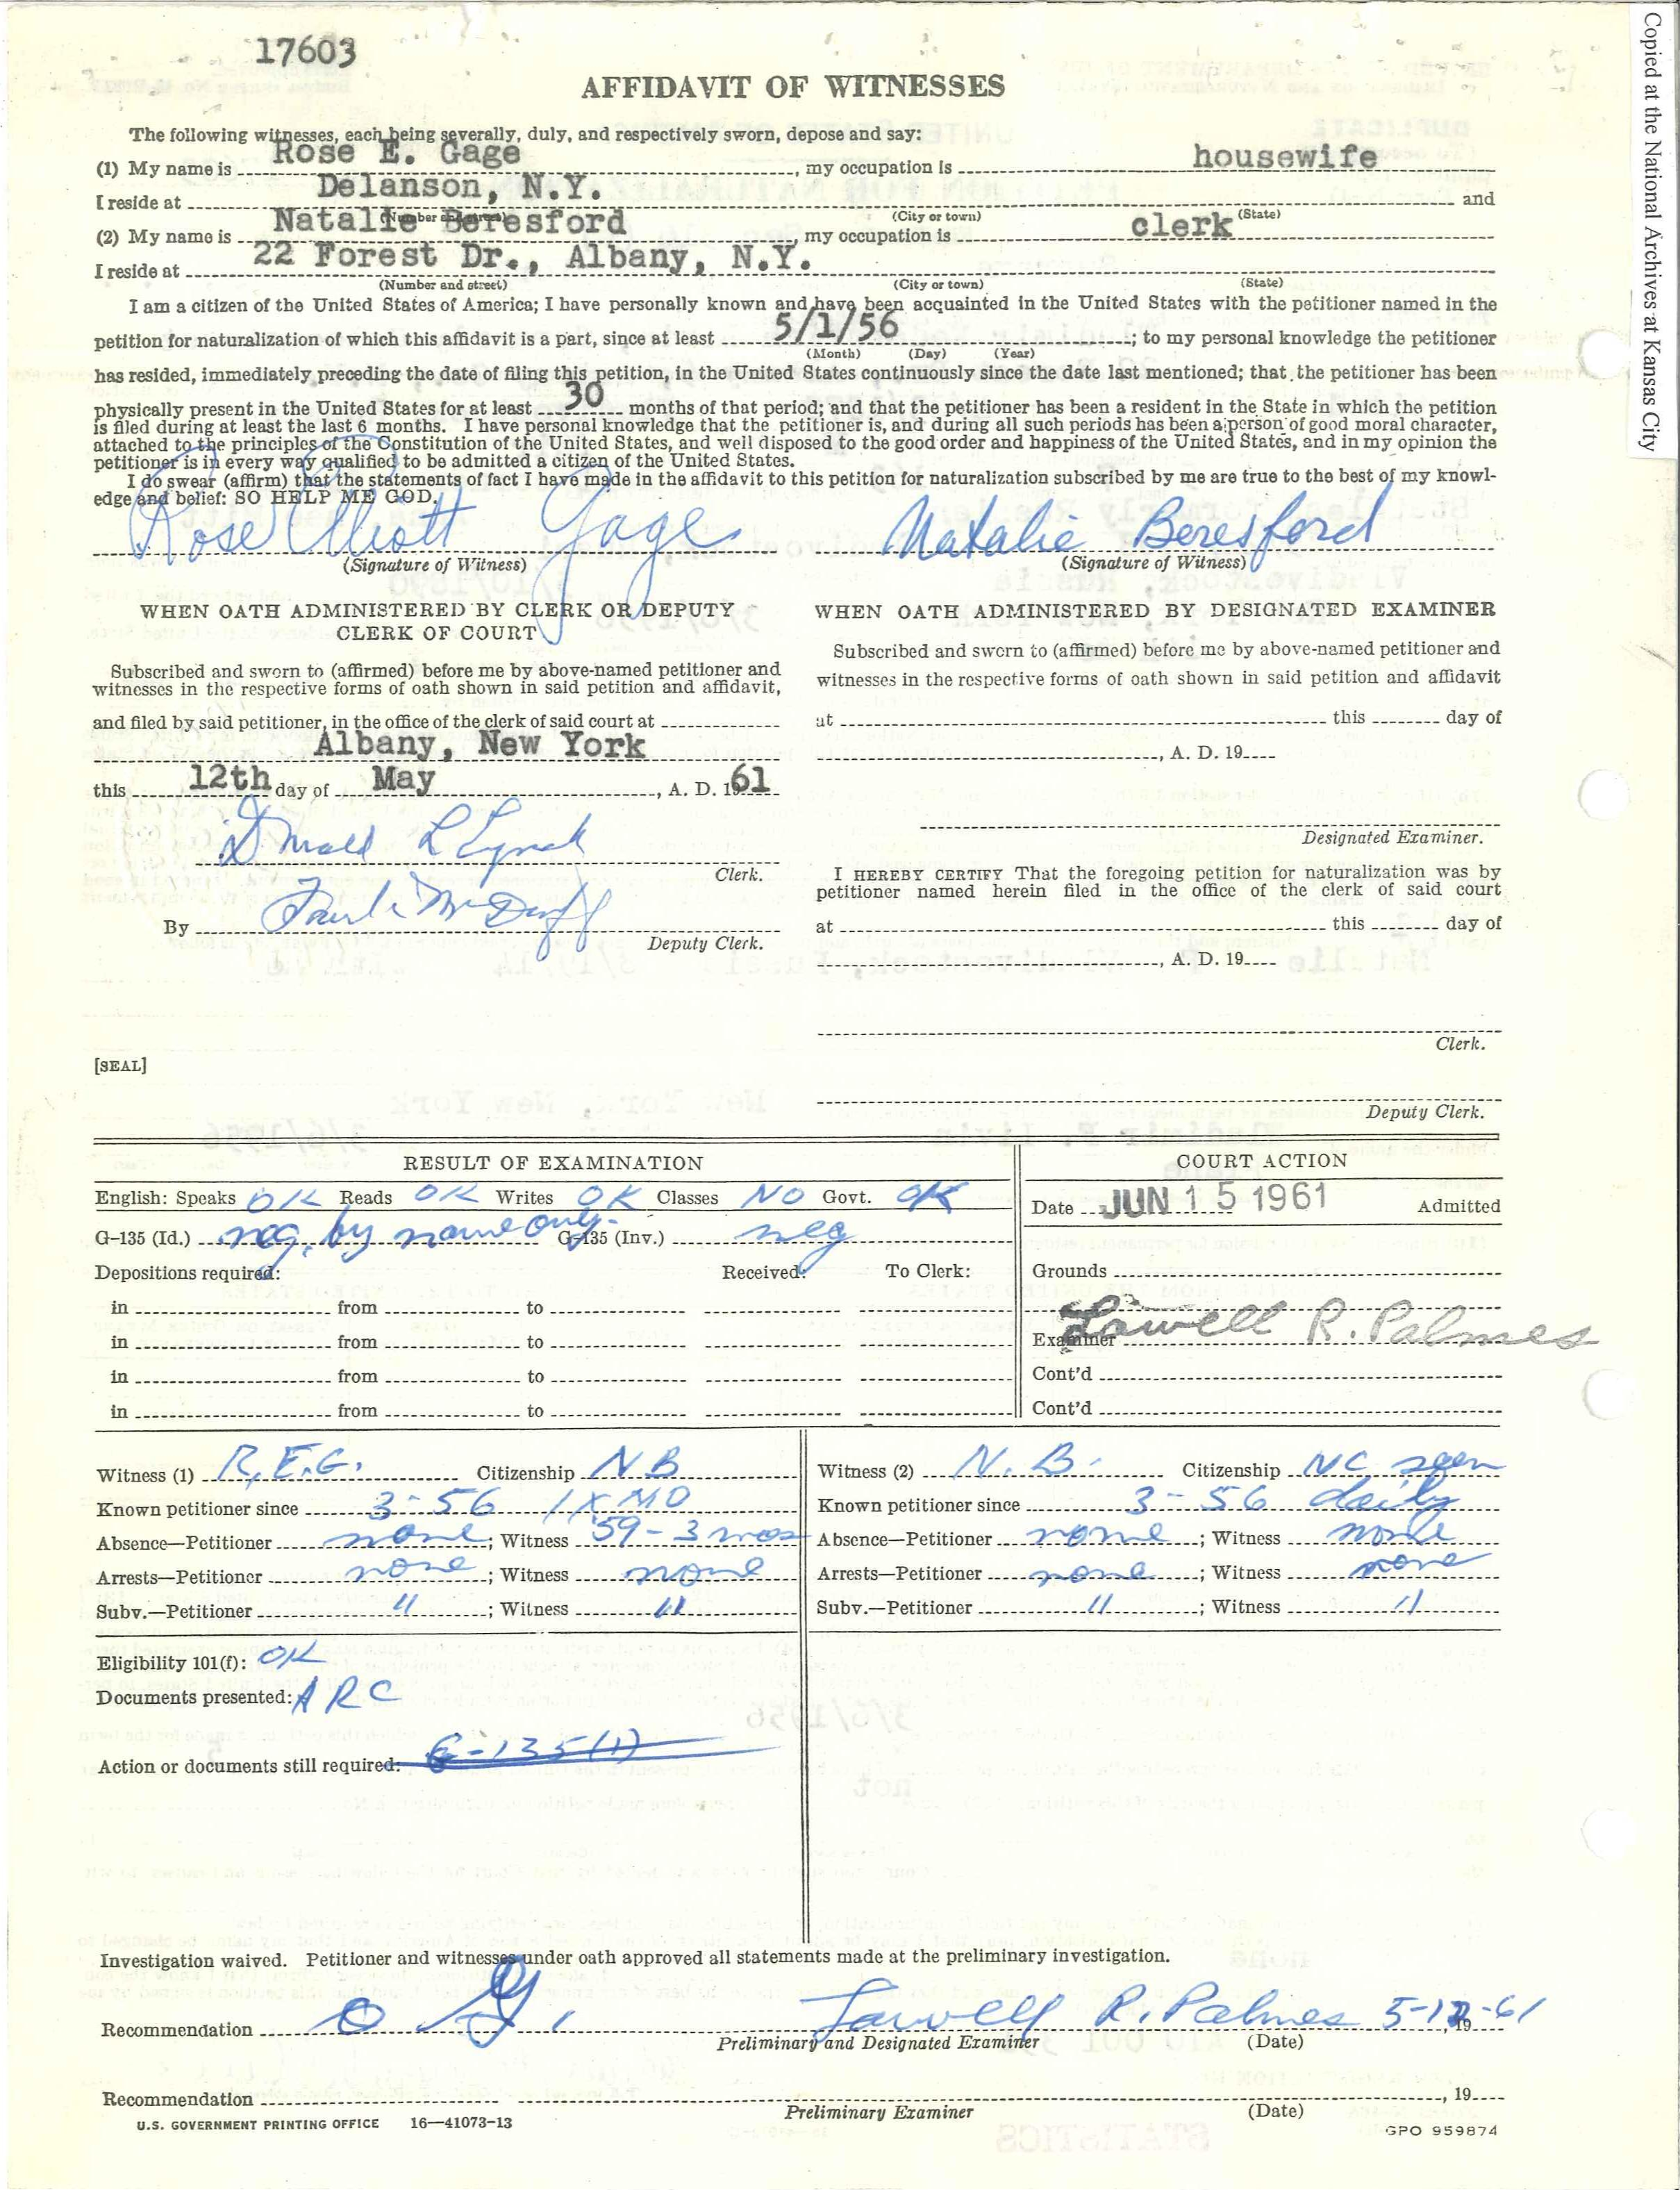 17603
AFFIDAVIT OF WITNESSES
The following witnesses, each being severally, duly, and respectively sworn, depose and say:
(1) My name is Rose E. Gage, my occupation is housewife
I reside at Delanson, N.Y. and
(Number and street) (City or town) (State)
(2) My name is Natalie Beresford, my occupation is clerk
I reside at 22 Forest Dr., Albany, N.Y.
(Number and street) (City or town) (State)
I am a citizen of the United States of America; I have personally known and have been acquainted in the United States with the petitioner named in the
petition for naturalization of which this affidavit is a part, since at least 5/1/56; to my personal knowledge the petitioner
(Month) (Day) (Year)
has resided, immediately preceding the date of filing this petition, in the United States continuously since the date last mentioned; that the petitioner has been
physically present in the United States for at least 30 months of that period; and that the petitioner has been a resident in the State in which the petition
is filed during at least the last 6 months. I have personal knowledge that the petitioner is, and during all such periods has been a person of good moral character,
attached to the principles of the Constitution of the United States, and well disposed to the good order and happiness of the United States, and in my opinion the
petitioner is in every way qualified to be admitted a citizen of the United States.
I do swear (affirm) that the statements of fact I have made in the affidavit to this petition for naturalization subscribed by me are true to the best of my knowl-
edge and belief: SO HELP ME GOD.
Rose Elliott Gage Natalie Beresford
(Signature of Witness) (Signature of Witness)
WHEN OATH ADMINISTERED BY CLERK OR DEPUTY
CLERK OF COURT
Subscribed and sworn to (affirmed) before me by above-named petitioner and
witnesses in the respective forms of oath shown in said petition and affidavit,
and filed by said petitioner, in the office of the clerk of said court at
Albany, New York
this 12th day of May, A. D. 1961
Donald L Lynch
Clerk.
By
Deputy Clerk.
[SEAL]
WHEN OATH ADMINISTERED BY DESIGNATED EXAMINER
Subscribed and sworn to (affirmed) before me by above-named petitioner and
witnesses in the respective forms of oath shown in said petition and affidavit
at this day of
, A. D. 19
Designated Examiner.
I HEREBY CERTIFY That the foregoing petition for naturalization was by
petitioner named herein filed in the office of the clerk of said court
at this day of
, A. D. 19
Clerk.
Deputy Clerk.
RESULT OF EXAMINATION
English: Speaks OK Reads OK Writes OK Classes NO Govt. OK
G-135 (Id.) neg. by name only. G-135 (Inv.) neg
Depositions required: Received: To Clerk:
in from to
in from to
in from to
in from to
COURT ACTION
Date JUN 15 1961 Admitted
Grounds
Examiner Lowell R. Palmes
Cont'd
Cont'd
Witness (1) R.E.G. Citizenship NB
Known petitioner since 3-56 1XMO
Absence—Petitioner none; Witness '59-3 mos
Arrests—Petitioner none; Witness none
Subv.—Petitioner "; Witness "
Witness (2) N. B. Citizenship NC seen
Known petitioner since 3-56 daily
Absence—Petitioner none; Witness none
Arrests—Petitioner none; Witness none
Subv.—Petitioner "; Witness "
Eligibility 101(f): OK
Documents presented: ARC
Action or documents still required: G-135(1)
Investigation waived. Petitioner and witnesses under oath approved all statements made at the preliminary investigation.
Recommendation Lowell R. Palmes 5-12-61, 19
Preliminary and Designated Examiner (Date)
Recommendation , 19
Preliminary Examiner (Date)
U.S. GOVERNMENT PRINTING OFFICE 16—41073-13
GPO 959874
Copied at the National Archives at Kansas City